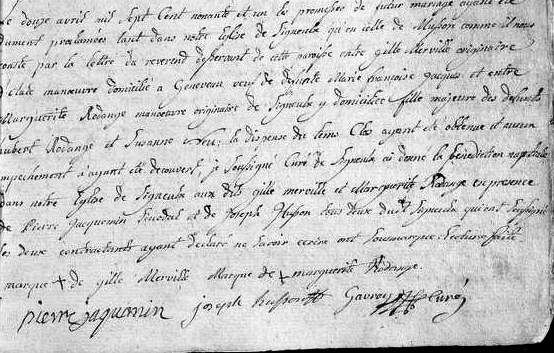 le douze avril mil sept cent nonante et un les promesses de futur mariage ayant été
dument proclamées tant dans notre Eglise de Signeulx qu'en celle de Musson comme il nous
conste par la lettre du reverend desservant de cette paroisse entre gille Merville originaire
manœuvre domicilié a Geneveau veuf de defunte Marie francoise jacques et entre
Marguerite Rodange manœuvre originaire de Signeulx y domiciliée fille majeure des defunts
hubert Rodange et Susanne la dispense de tems Clos ayant été obtenue et aucun
empechement n'ayant été decouvert je soussigné Curé de Signeulx ai donné la bénédiction nuptiale
dans notre Eglise de Signeulx aux dits gille merville et Marguerite Rodange en presence
de Pierre Jacquemin et de Joseph Husson tous deux du dit Signeulx qui ont soussigné
les deux contractants ayant declaré ne savoir ecrire ont sousmarqué lecture faite
marque + de gille Merville Marque de + marguerite Rodange.
pierre jaquemin joseph husson Gavroy Curé